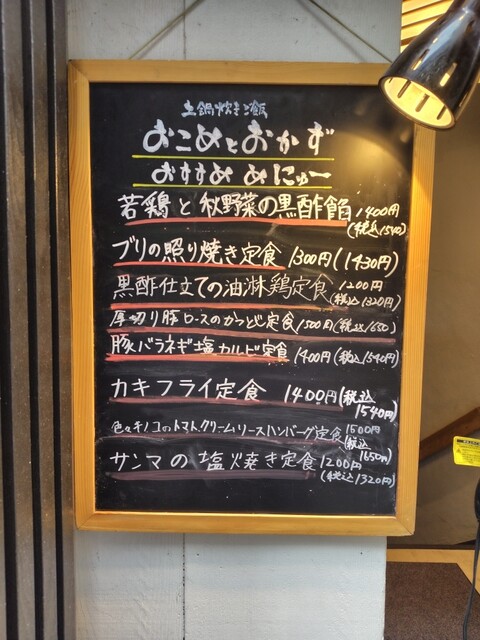 土鍋炊きご飯
おこめとおかず
おすすめ めにゅー
若鶏と秋野菜の黒酢餡 1400円
(税込1540)
ブリの照り焼き定食 1300円(1430円)
黒酢仕立ての油淋鶏定食 1200円
(税込1320円)
厚切り豚ロースのカツとじ定食 1500円(税込1650)
豚バラネギ塩カルビ定食 1400円(税込1540円)
カキフライ定食 1400円(税込
1540円)
色々キノコのトマトクリームソースハンバーグ定食 1500円
(税込
1650円)
サンマの塩焼き定食 1200円
(税込1320円)